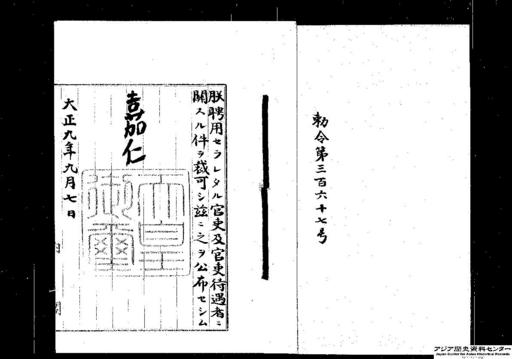 勅令第三百六十七号
朕聘用セラレタル官吏及官吏待遇者ニ
関スル件ヲ裁可シ茲ニ之ヲ公布セシム
嘉仁
天皇御璽
大正九年九月七日
内閣
アジア歴史資料センター
Japan Center for Asian Historical Records